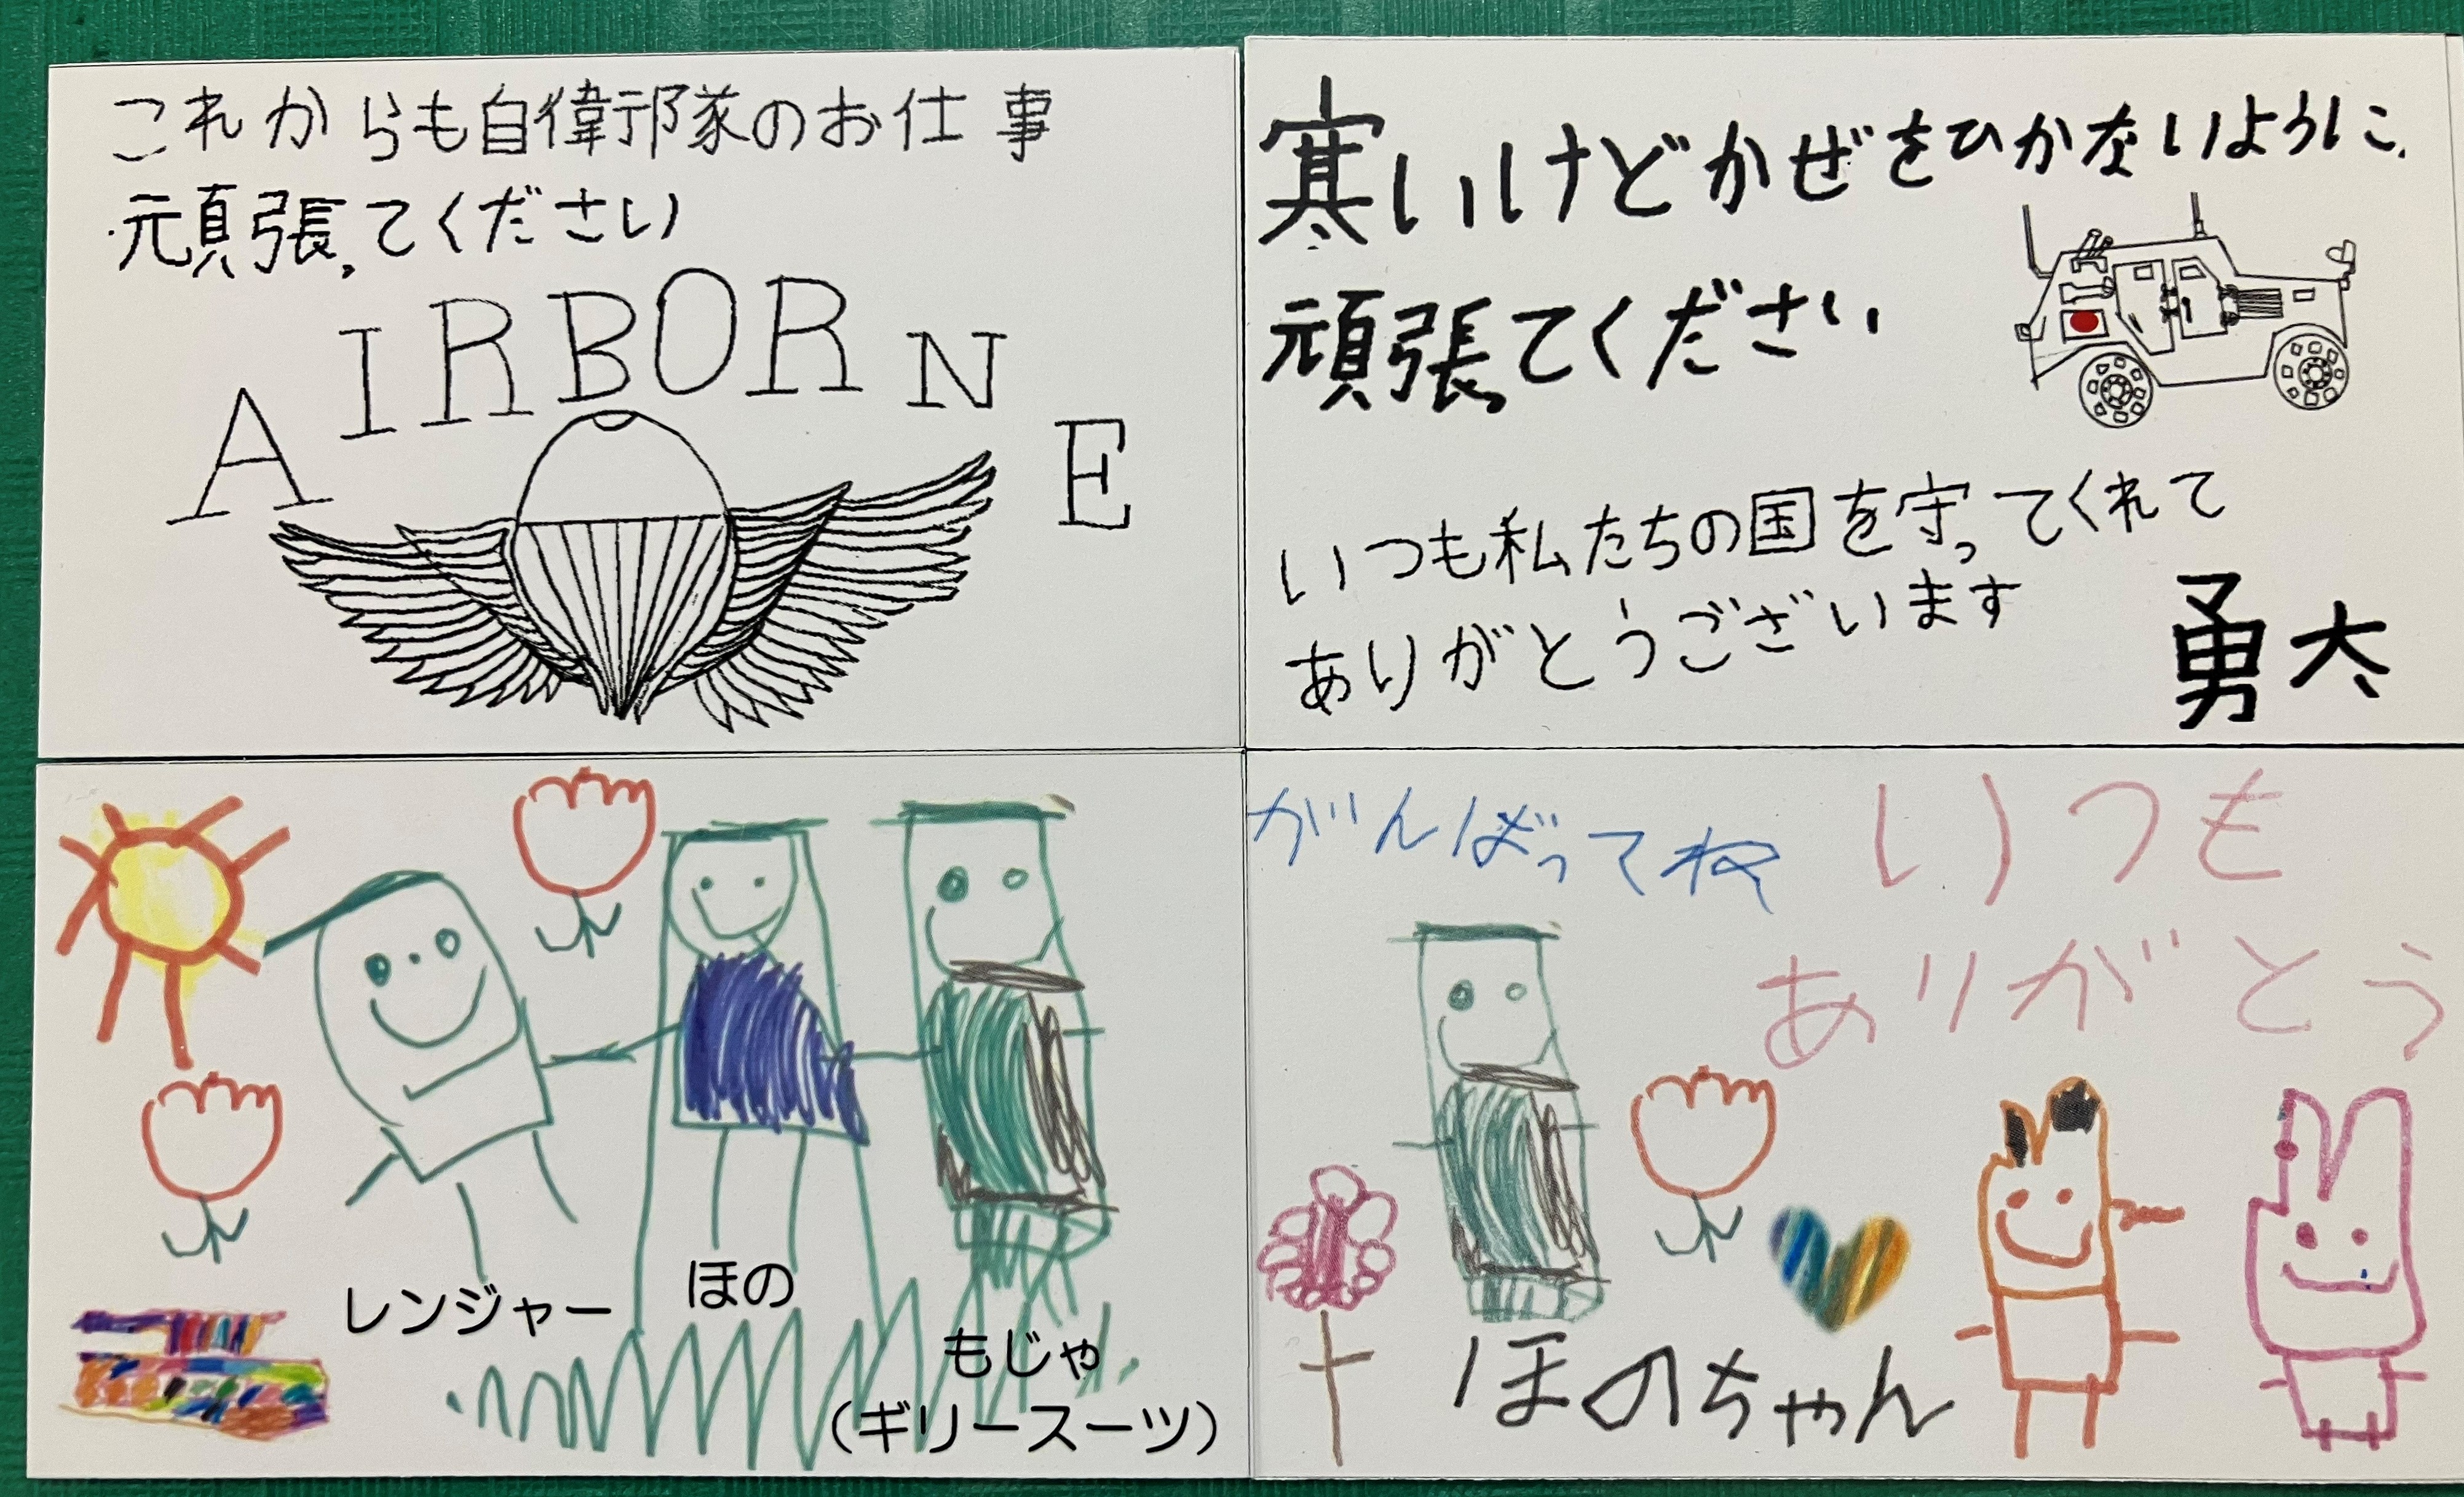 これからも自衛隊のお仕事
頑張ってください
AIRBORNE
寒いけどかぜをひかないように
頑張ってください
いつも私たちの国を守ってくれて
ありがとうございます
勇太
レンジャー
ほの
もじゃ
（ギリースーツ）
がんばってね
いつも
ありがとう
ほのちゃん